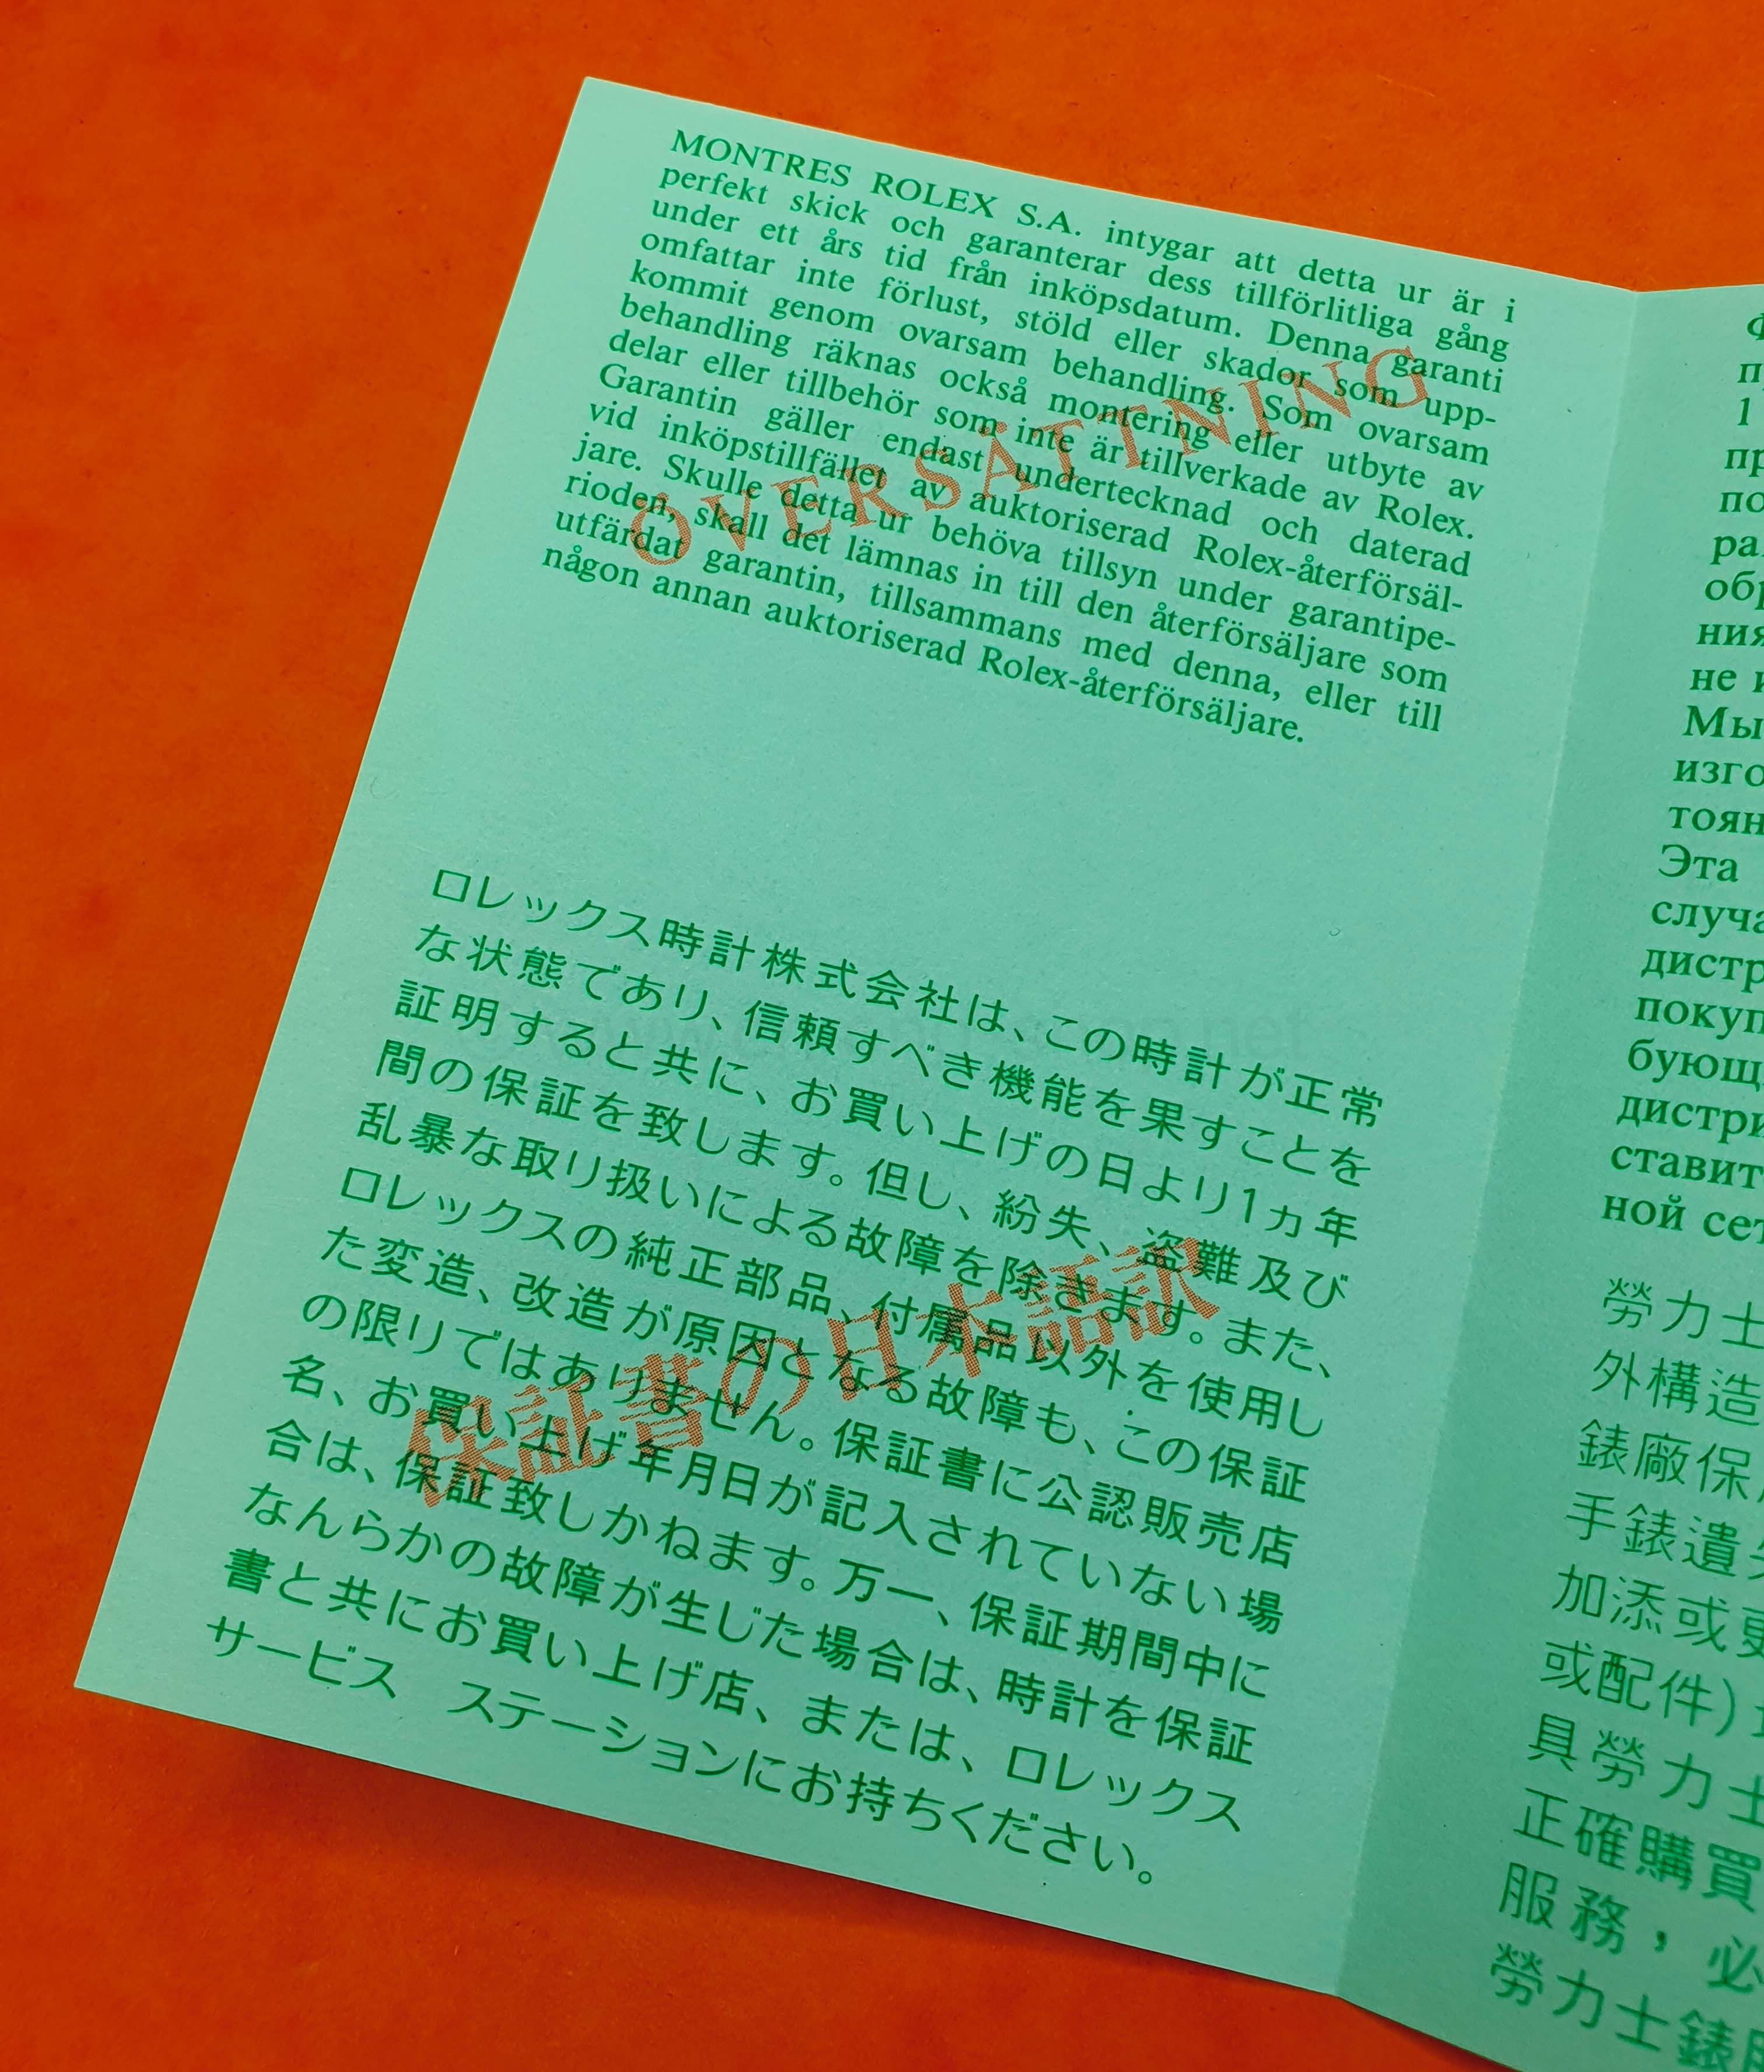 MONTRES ROLEX S.A. intygar att detta ur är i
perfekt skick och garanterar dess tillförlitliga gång
under ett års tid från inköpsdatum. Denna garanti
omfattar inte förlust, stöld eller skador som upp-
kommit genom ovarsam behandling. Som ovarsam
behandling räknas också montering eller utbyte av
delar eller tillbehör som inte är tillverkade av Rolex.
Garantin gäller endast undertecknad och daterad
vid inköpstillfället av auktoriserad Rolex-återförsäl-
jare. Skulle detta ur behöva tillsyn under garantipe-
rioden, skall det lämnas in till den återförsäljare som
utfärdat garantin, tillsammans med denna, eller till
någon annan auktoriserad Rolex-återförsäljare.
ÖVERSÄTTNING
ロレックス時計株式会社は、この時計が正常
な状態であり、信頼すべき機能を果すことを
証明すると共に、お買い上げの日より1ヵ年
間の保証を致します。但し、紛失、盗難及び
乱暴な取り扱いによる故障を除きます。また、
ロレックスの純正部品、付属品以外を使用し
た変造、改造が原因となる故障も、この保証
の限りではありません。保証書に公認販売店
名、お買い上げ年月日が記入されていない場
合は、保証致しかねます。万一、保証期間中に
なんらかの故障が生じた場合は、時計を保証
書と共にお買い上げ店、または、ロレックス
サービス ステーションにお持ちください。
保証書の日本語訳
1
не
Мы
Эта
ной
勞力士
外構造
錶廠保
手錶遺
加添或
或配件)
具勞力士
正確購買
服務，必
勞力士錶